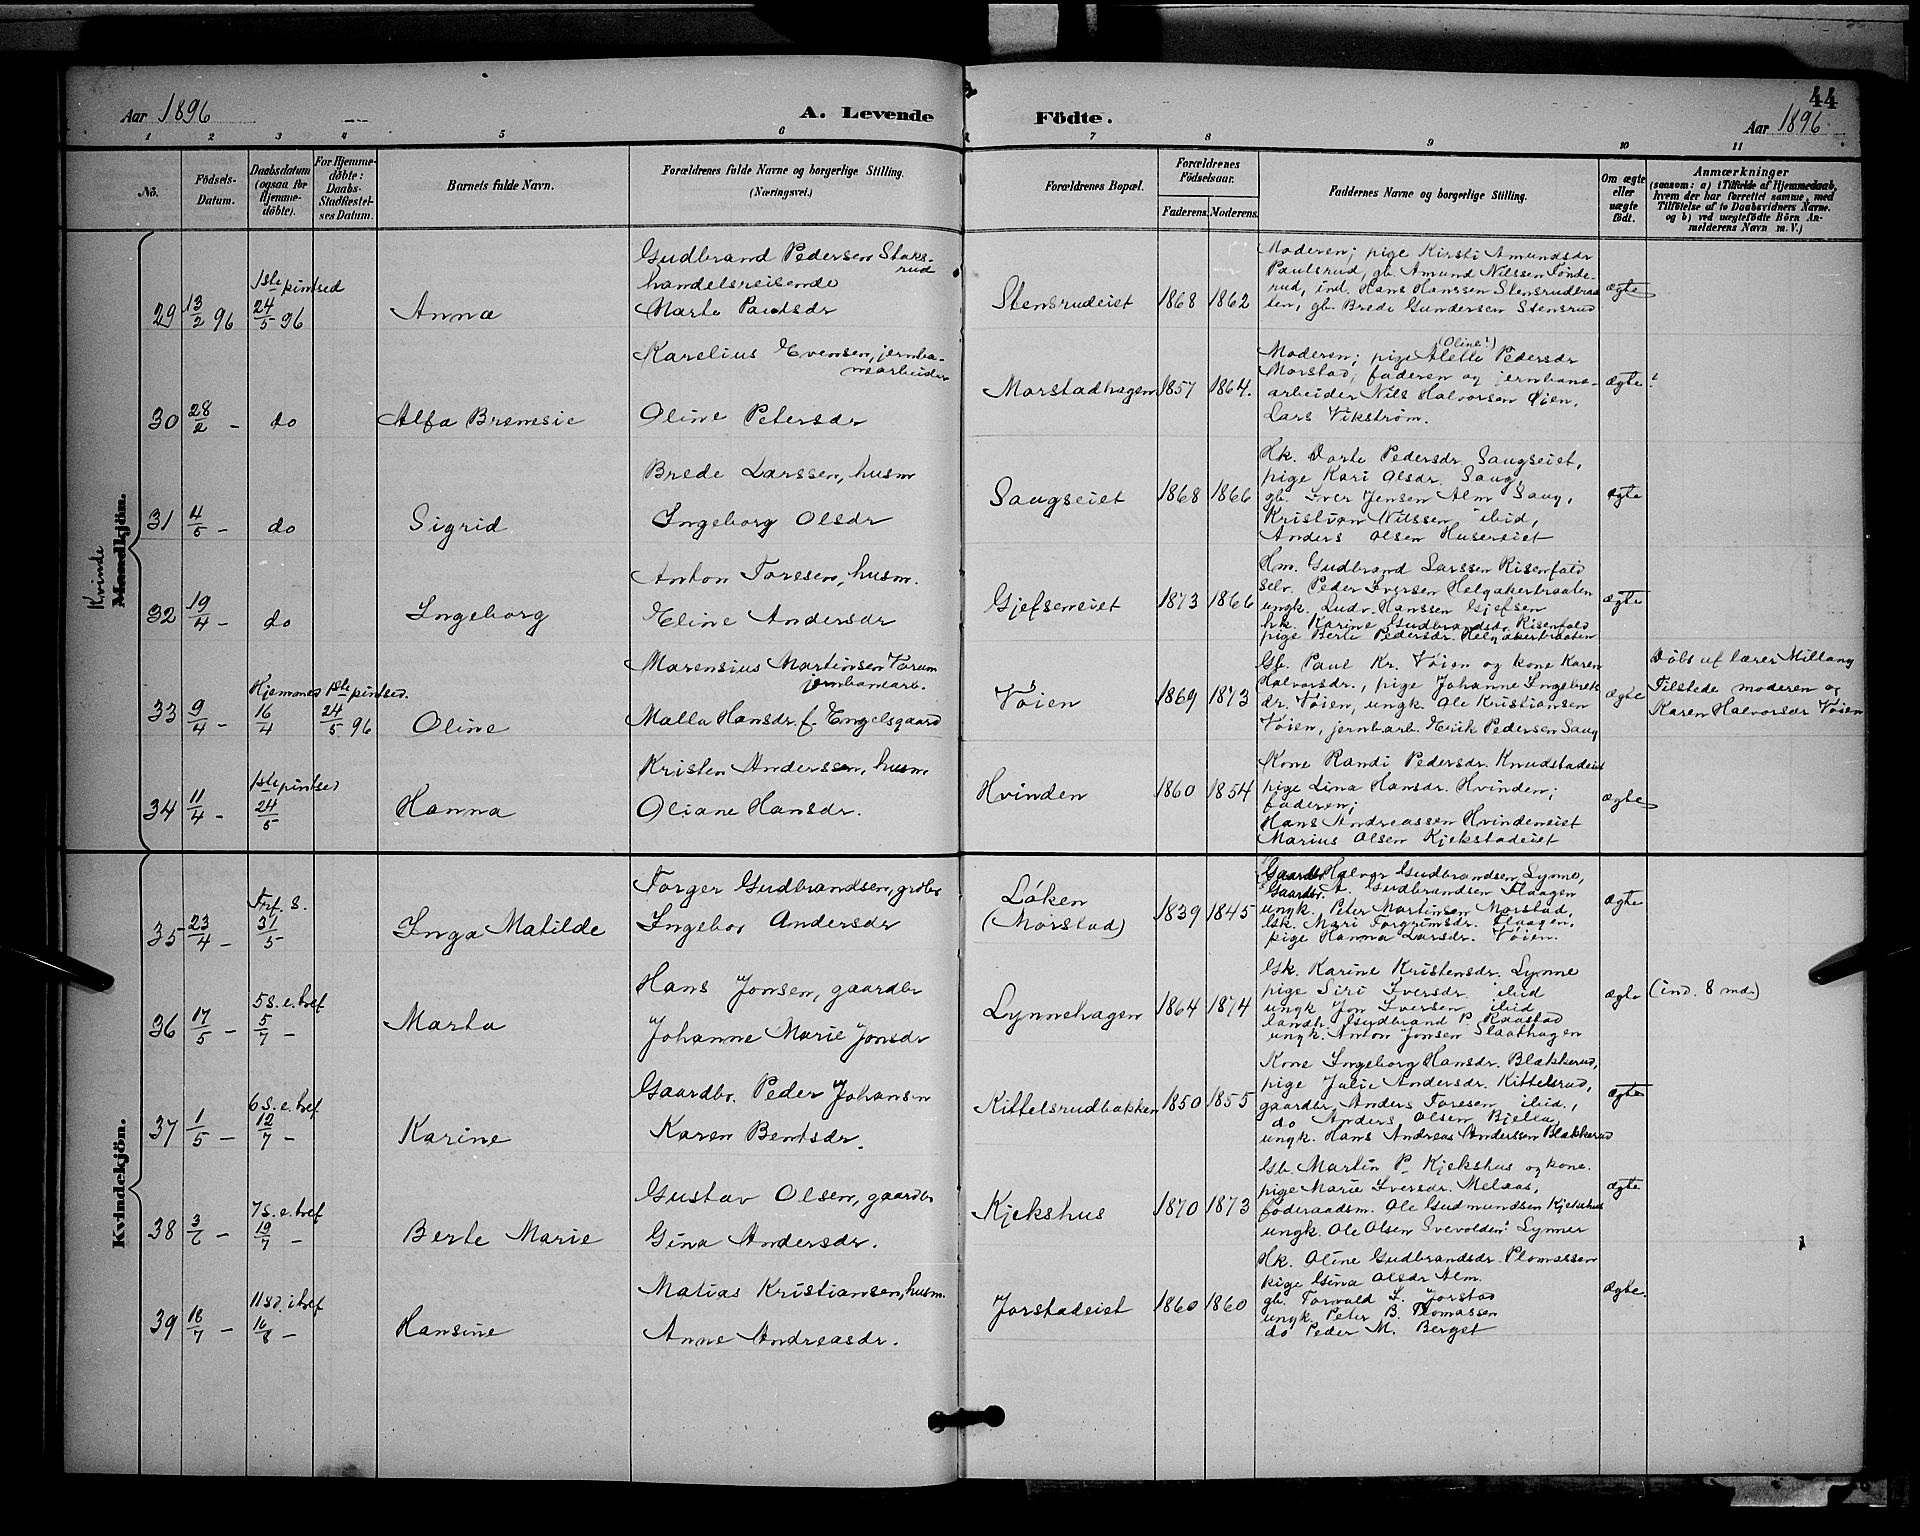 44
Aar 1896
A. Levende
Födte.
Aar 1896
1 2 3 4 5 6 7 8 9 10 11
No.
Födsels-
Datum.
Daabsdatum
(ogsaa for
Hjemme-
döbte).
For Hjemme-
döbte:
Daabs-
Stadfæstel-
ses Datum.
Barnets fulde Navn.
Forældrenes fulde Navne og borgerlige Stilling.
(Næringsvei.)
Forældrenes Bopæl.
Forældrenes
Födselsaar.
Faderens. Moderens.
Faddernes Navne og borgerlige Stilling.
Om ægte
eller
uægte
födt.
Anmærkninger
(saasom: a) i Tilfælde af Hjemmedaab,
hvem der har forrettet samme, med
Tilföielse af to Daabsvidners Navne,
og b) ved uægtefödte Börn An-
melderens Navn m. V.)
Kvinde
Mandkjön.
29 13/2 96
1ste pintsed
24/5 96
Anna
Gudbrand Pedersen Staks-
rud
handelsreisende
Marte Paulsdr
Stensrudeiet 1868 1862
Moderen; pige Kirsti Amundsdr
Paulsrud, gb. Amund Nilssen Tønde-
rud, ind. Hans Hanssen Stensrudbraa
ten, gb. Brede Gundersen Stensrud
ægte
30 28/2 - do
Alfa Bremsie
Karelius Evensen, jernba-
nearbeider
Oline Petersdr
Morstadhagen 1857 1864.
(Oline!)
Moderen; pige Alette Pedersdr
Morstad, faderen og jernbane-
arbeider Nils Halvorsen Øien,
Lars Vikstrøm.
ægte!
31 4/5 - do
Sigrid
Brede Larssen, husm
Ingeborg Olsdr
Saugseiet 1868 1866
Hk. Dorte Pedersdr Saugseiet,
pige Kari Olsdr. Saug,
gb. Iver Jensen Alm Saug,
Kristian Nilssen ibid,
Anders Olsen Husereiet
ægte
32 19/4 - do
Ingeborg
Anton Toresen, husm.
Eline Andersdr
Gjefseneiet 1873 1866
Hm. Gudbrand Larssen Risenfald
selv. Peder Iversen Helgakerbraaten
ungk. Ludv. Hanssen Gjefsen
hk. Karine Gudbrandsdr. Risenfald
pige Berte Pedersdr. Helgakerbraaten
ægte
33 9/4 -
Hjemmed
16/4
1ste pintsed.
24/5 96
Oline
Marensius Martinsen Torum
jernbanearb.
Malla Hansdr. f. Engelsgaard
Tøien 1869 1873
Gb. Paul Kr. Tøien og kone Karen
Halvorsdr., pige Johanne Ingebrekts
dr. Tøien, ungk. Ole Kristiansen
Tøien, jernbarb. Erik Pedersen Saug
ægte
Døbt af lærer Millang
Tilstede moderen og
Karen Halvorsdr Tøien
34 11/4 -
1ste pintsed
24/5
Hanna
Kristen Anderssen, husm
Oliane Hansdr.
Hvinden 1860 1854
Kone Randi Pedersdr. Knudstadeiet
pige Lina Hansdr. Hvinden;
faderen;
Hans Andreassen Hvindeneiet
Marius Olsen Kjekstadeiet
ægte
Kvindekjön.
35 23/4 -
Tref. s.
31/5
Inga Matilde
Torger Gudbrandsen, grdbr
Ingebor Andersdr
Løken
(Morstad)
1839 1845
Gaardbr Halvor Gudbrandsen Lynne,
Gaardbr. A. Gudbrandsen Flaagen
ungk. Peter Martinsen Morstad,
Gk. Mari Torgrimsdr. Flaagen,
pige Hanna Larsdr. Tøien.
ægte
36 17/5 -
5 s. e. tref
5/7 -
Marta
Hans Jonsen, gaardbr
Johanne Marie Jonsdr
Lynnehagen 1864 1874
Gk. Karine Kristensdr. Lynne
pige Siri Iversdr. ibid
ungk Jon Iversen ibid
landh. Gudbrand P. Raastad
ungk. Anton Jonsen Slaathagen
ægte
(ind. 8 mdr)
37 1/5 -
6 s. e. tref
12/7 -
Karine
Gaardbr. Peder Johansen
Karen Bentsdr.
Kittelsrudbakken 1850 1855
Kone Ingeborg Hansdr. Blækkerud,
pige Julie Andersdr. Kittelsrud,
gaardbr Anders Toresen ibid.,
do Anders Olsen Bjella,
ungk. Hans Andreas Anderssen Blækkerud
ægte
38 3/6 -
7 s. e. tref
19/7 -
Berte Marie
Gustav Olsen, gaardbr
Gina Andersdr.
Kjekshus 1870 1873
Gb. Martin P. Kjekshus og kone.
pige Marie Iversdr. Melaas,
føderaadsm. Ole Gudmundsen Kjekshus
ungk. Ole Olsen Svevolden: Lynner
ægte
39 18/7 -
11 sd. i tref
16/8 -
Hansine
Matias Kristiansen, husm.
Anne Andreasdr.
Jorstadeiet 1860 1860
Hk. Oline Gudbrandsdr. Plomassen
pige Gina Olsdr Alm.
gb. Torvald L. Jorstad
ungk. Peter B. Plomassen
do Peder M. Berget
ægte.